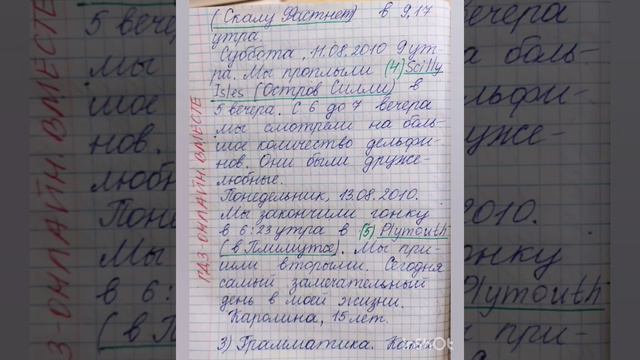 (Скалу Фастнет) в 9.17
утра.
Суббота, 11.08.2010 9 ут-
ра. Мы проплыли (4) Scilly
Isles (Остров Силли) в
5 вечера. С 6 до 7 вечера
мы смотрели на боль-
шое количество дельфи-
нов. Они были друже-
любные.
Понедельник, 13.08.2010.
Мы закончили гонку
в 6:23 утра в (5) Plymouth
(в Плимутхе). Мы при-
шли вторыми. Сегодня
самый замечательный
день в моей жизни.
Каролина, 15 лет.
3) Грамматика.
ГДЗ-ОНЛАЙН. ВМЕСТЕ